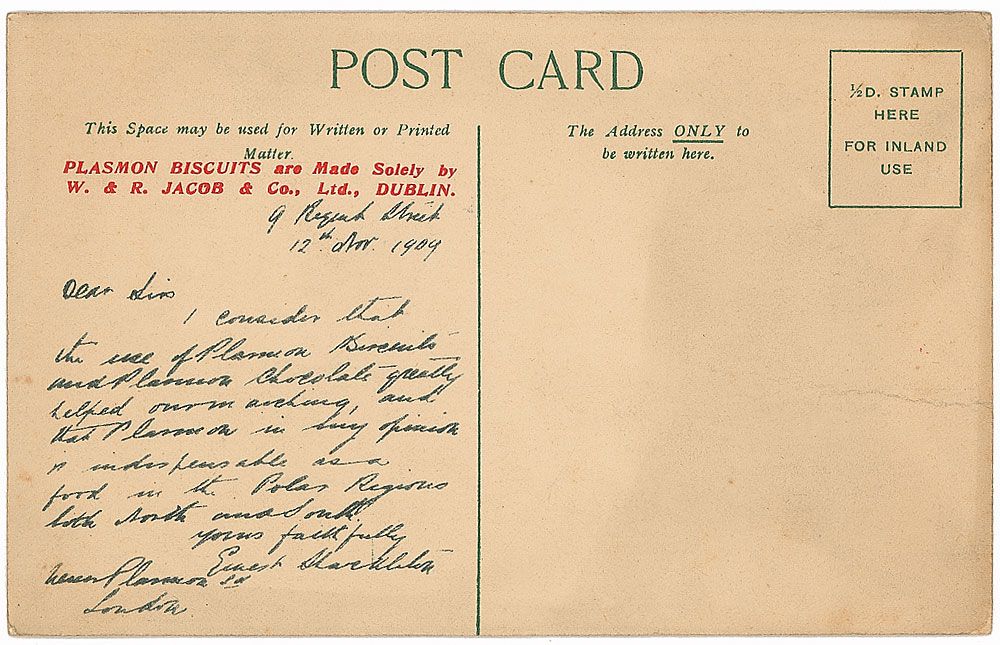 POST CARD
This Space may be used for Written or Printed
Matter.
PLASMON BISCUITS are Made Solely by
W. & R. JACOB & Co., Ltd., DUBLIN.
9 Regent Street
12th Nov. 1909
Dear Sirs
I consider that
the use of Plasmon Biscuits
and Plasmon Chocolate greatly
helped our marching, and
that Plasmon in my opinion
is indispensable as a
food in the Polar Regions
both North and South.
yours faithfully
Ernest Shackleton
Plasmon Ld
London
The Address ONLY to
be written here.
½D. STAMP
HERE
FOR INLAND
USE